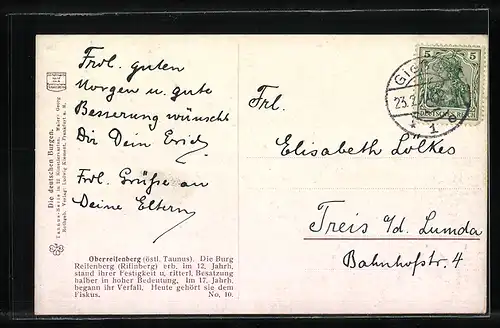 Frdl. guten
Morgen u. gute
Besserung wünscht
Dir Dein Erich
Frdl. Grüsse an
Deine Eltern
Frl.
Elisabeth Lölkes
Treis a/d. Lumda
Bahnhofstr. 4
5 5
DEUTSCHES REICH
23.2
1
Die deutschen Burgen.
Taunus-Serie in 12 Künstlerkarten. Maler: Georg
Verlag: Ludwig Klement, Frankfurt a. M.
Oberreifenberg (östl. Taunus). Die Burg
Reifenberg (Rifinberg) erb. im 12. Jahrh.
stand ihrer Festigkeit u. ritterl. Besatzung
halber in hoher Bedeutung. Im 17. Jahrh.
begann ihr Verfall. Heute gehört sie dem
Fiskus. No. 10.